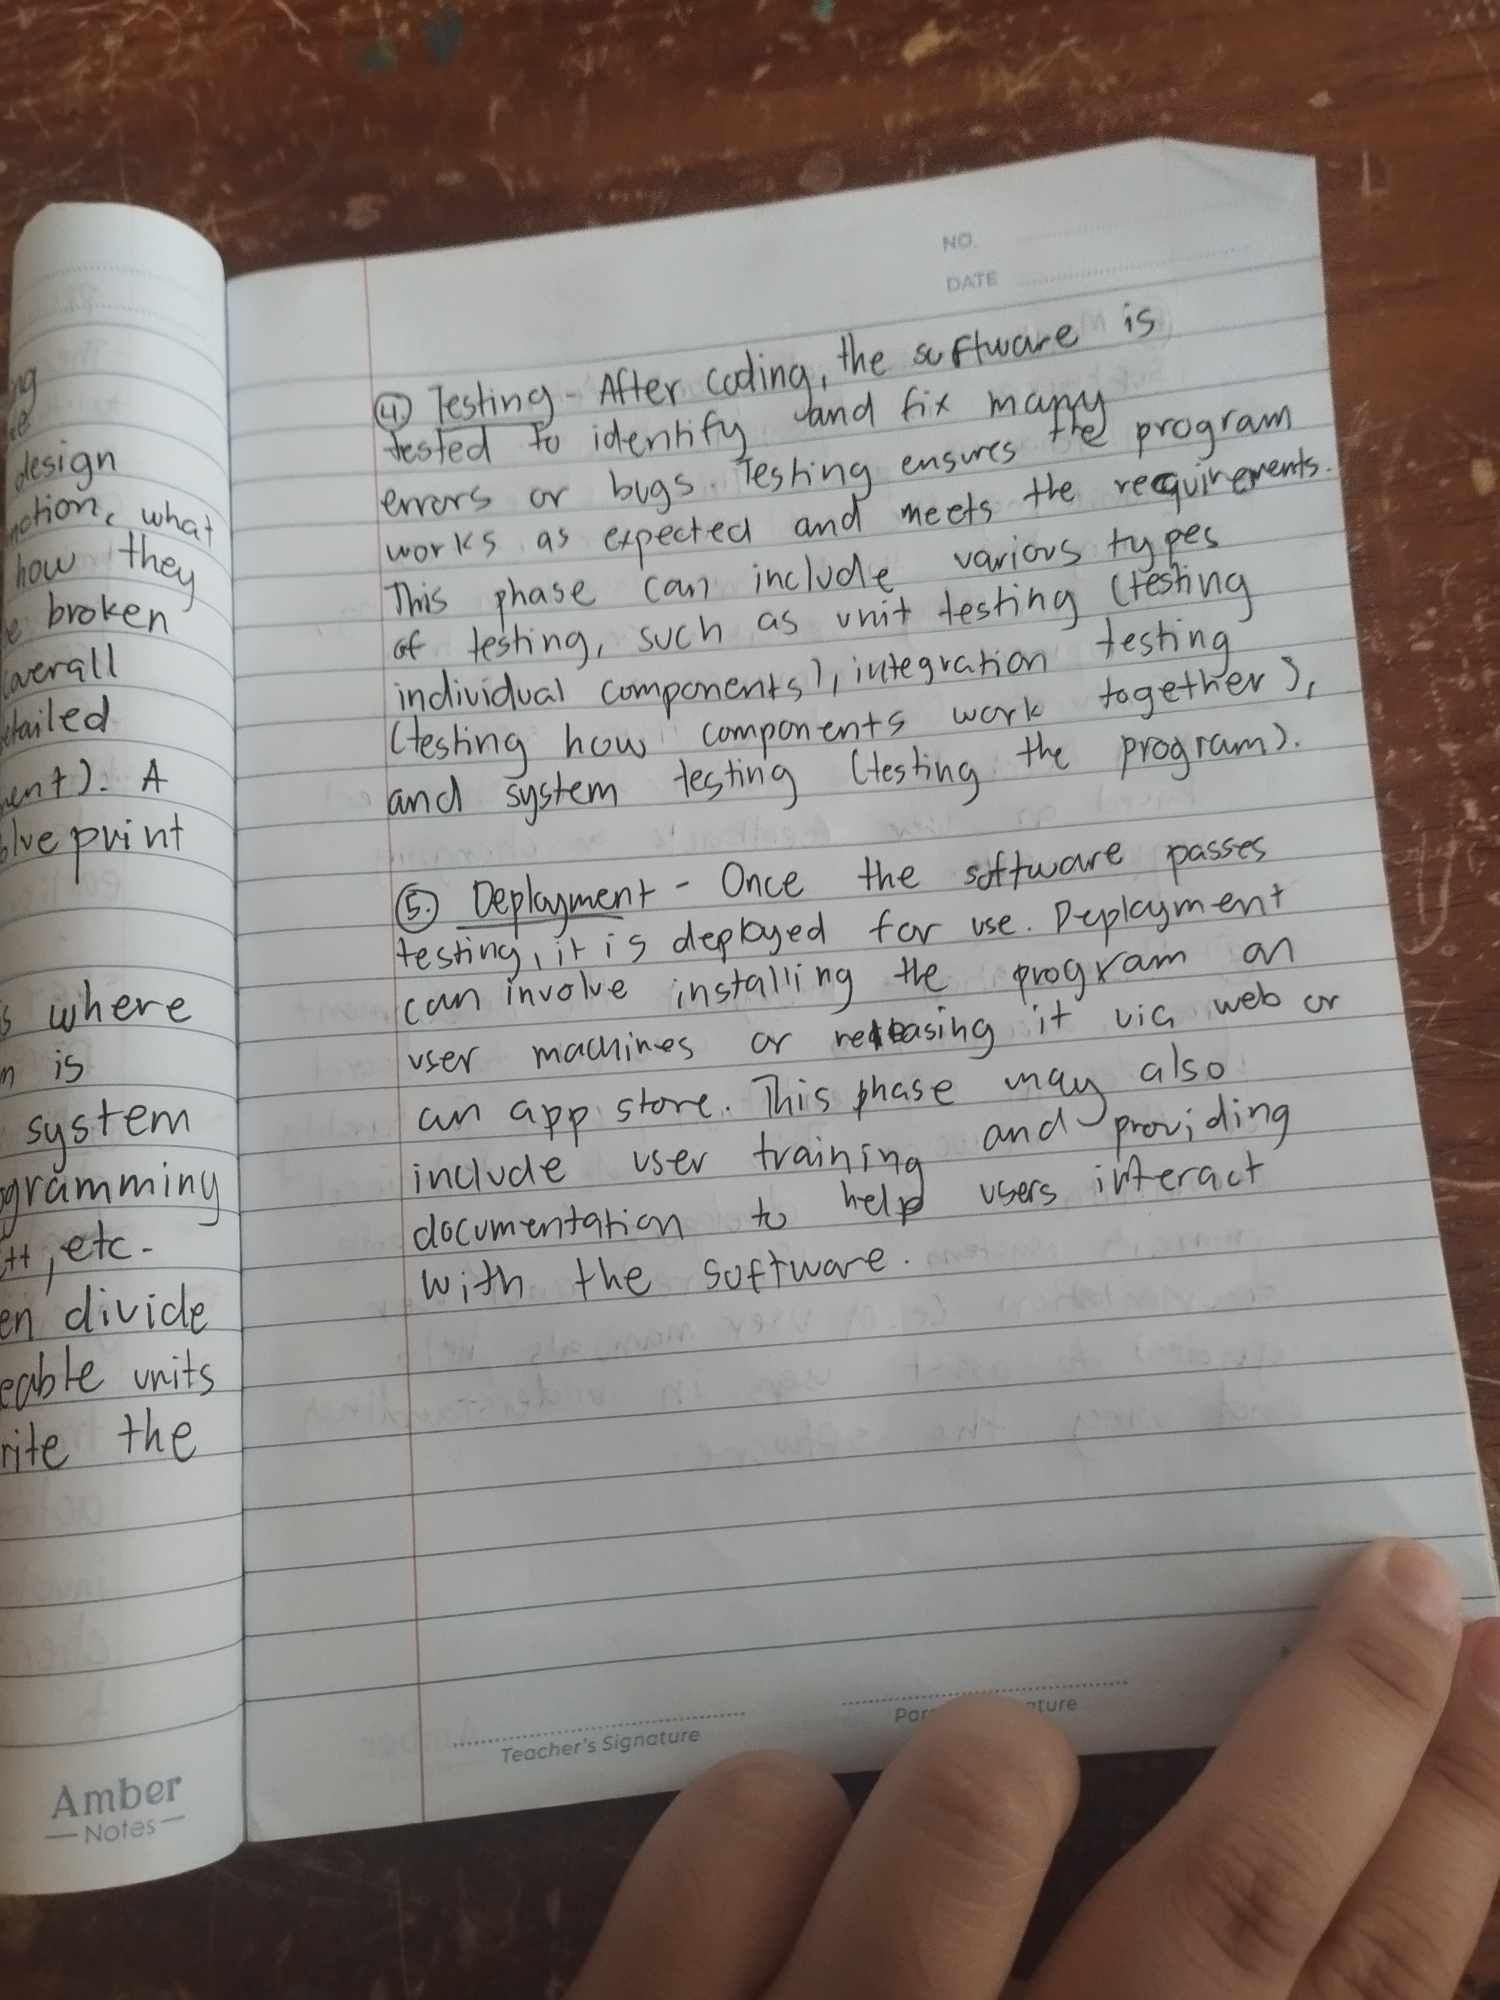 design
what
how they
broken
overall
A
where
is
system
etc.
divide
units
the
Amber
Notes
NO.
DATE
④ Testing - After coding, the software is
tested to identify and fix many
errors or bugs. Testing ensures the program
works as expected and meets the requirements.
This phase can include various types
of testing, such as unit testing (testing
individual components), integration testing
(testing how components work together),
and system testing (testing the program).
⑤. Deployment - Once the software passes
testing, it is deployed for use. Deployment
can involve installing the program on
user machines or releasing it via web or
an app store. This phase may also
include user training and providing
documentation to help users interact
with the software.
Teacher's Signature